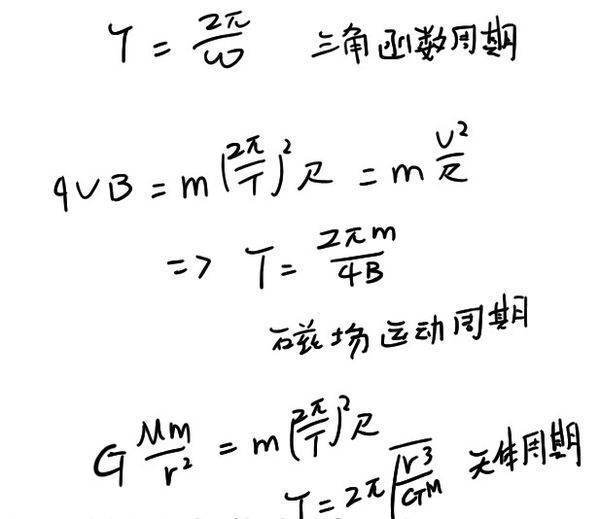 T = 2π/ω 三角函数周期
qvB = m(2π/T)²R = m v²/R
=> T = 2πm/qB
磁场运动周期
G Mm/r² = m(2π/T)²R
T = 2π√(r³/GM) 天体周期